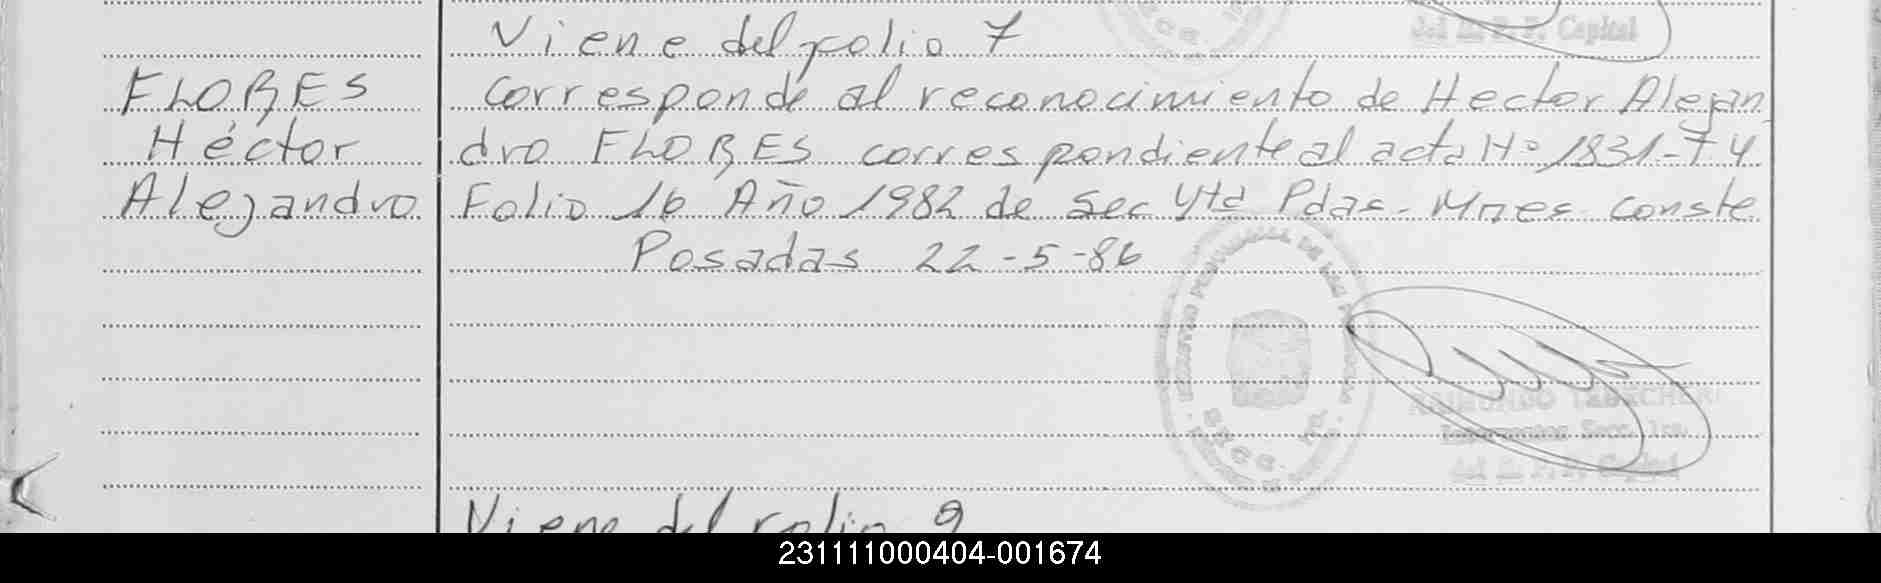 Viene del folio 7
del R. P. P. Capital
FLORES
Héctor
Alejandro
Corresponde al reconocimiento de Hector Alejan
dro FLORES correspondiente al acta Nº 1831-74
Folio 16 Año 1982 de Sec 4ta Pdas. Mnes. Conste
Posadas 22-5-86
RAIMUNDO
Secc. 1ra.
del R. P. P. Capital
Viene del folio 9
231111000404-001674